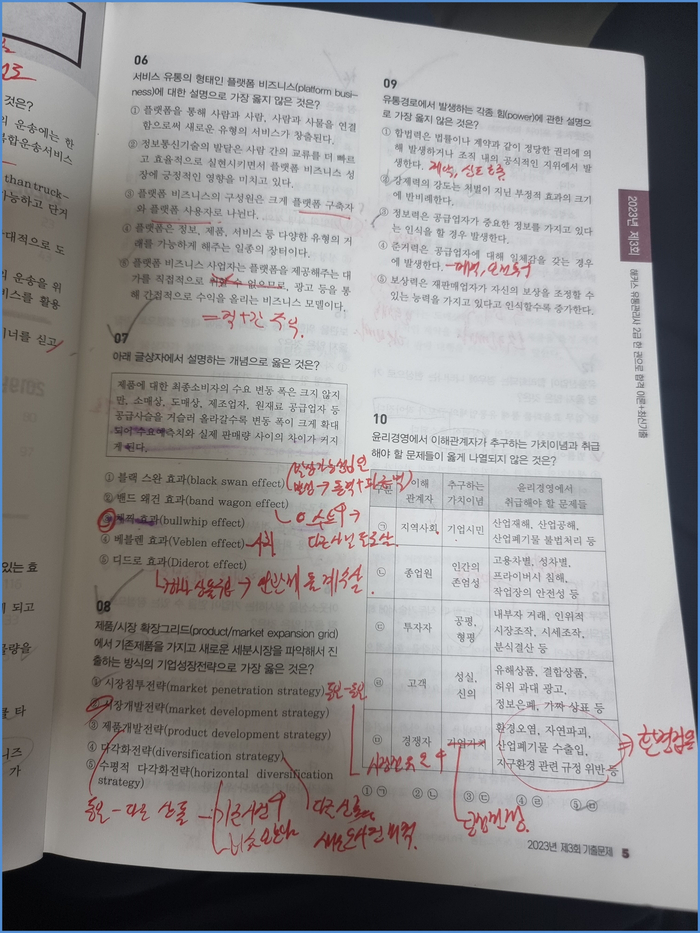 것은?
의 운송에는 한
복합운송서비스
than truck-
가능하고 단거
대적으로 도
의 운송을 위
비스를 활용
이너를 싣고
있는 효
06
서비스 유통의 형태인 플랫폼 비즈니스(platform busi-
ness)에 대한 설명으로 가장 옳지 않은 것은?
① 플랫폼을 통해 사람과 사람, 사람과 사물을 연결
함으로써 새로운 유형의 서비스가 창출된다.
② 정보통신기술의 발달은 사람 간의 교류를 더 빠르
고 효율적으로 실현시키면서 플랫폼 비즈니스 성
장에 긍정적인 영향을 미치고 있다.
③ 플랫폼 비즈니스의 구성원은 크게 플랫폼 구축자
와 플랫폼 사용자로 나뉜다.
④ 플랫폼은 정보, 제품, 서비스 등 다양한 유형의 거
래를 가능하게 해주는 일종의 장터이다.
⑤ 플랫폼 비즈니스 사업자는 플랫폼을 제공해주는 대
가를 직접적으로 취할 수 없으므로, 광고 등을 통
해 간접적으로 수익을 올리는 비즈니스 모델이다.
07
아래 글상자에서 설명하는 개념으로 옳은 것은?
제품에 대한 최종소비자의 수요 변동 폭은 크지 않지
만, 소매상, 도매상, 제조업자, 원재료 공급업자 등
공급사슬을 거슬러 올라갈수록 변동 폭이 크게 확대
되어 수요예측치와 실제 판매량 사이의 차이가 커지
게 된다.
① 블랙 스완 효과(black swan effect)
② 밴드 왜건 효과(band wagon effect)
③ 채찍 효과(bullwhip effect)
④ 베블렌 효과(Veblen effect)
⑤ 디드로 효과(Diderot effect)
08
제품/시장 확장그리드(product/market expansion grid)
에서 기존제품을 가지고 새로운 세분시장을 파악해서 진
출하는 방식의 기업성장전략으로 가장 옳은 것은?
① 시장침투전략(market penetration strategy)
② 시장개발전략(market development strategy)
③ 제품개발전략(product development strategy)
④ 다각화전략(diversification strategy)
⑤ 수평적 다각화전략(horizontal diversification
strategy)
09
유통경로에서 발생하는 각종 힘(power)에 관한 설명으
로 가장 옳지 않은 것은?
① 합법력은 법률이나 계약과 같이 정당한 권리에 의
해 발생하거나 조직 내의 공식적인 지위에서 발
생한다.
② 강제력의 강도는 처벌이 지닌 부정적 효과의 크기
에 반비례한다.
③ 정보력은 공급업자가 중요한 정보를 가지고 있다
는 인식을 할 경우 발생한다.
④ 준거력은 공급업자에 대해 일체감을 갖는 경우
에 발생한다.
⑤ 보상력은 재판매업자가 자신의 보상을 조정할 수
있는 능력을 가지고 있다고 인식할수록 증가한다.
10
윤리경영에서 이해관계자가 추구하는 가치이념과 취급
해야 할 문제들이 옳게 나열되지 않은 것은?
구분 이해관계자 추구하는 가치이념 윤리경영에서 취급해야 할 문제들
㉠ 지역사회 기업시민 산업재해, 산업공해,
산업폐기물 불법처리 등
㉡ 종업원 인간의 존엄성 고용차별, 성차별,
프라이버시 침해,
작업장의 안전성 등
㉢ 투자자 공평, 형평 내부자 거래, 인위적
시장조작, 시세조작,
분식결산 등
㉣ 고객 성실, 신의 유해상품, 결합상품,
허위 과대 광고,
정보은폐, 가짜 상표 등
㉤ 경쟁자 기업가치 환경오염, 자연파괴,
산업폐기물 수출입,
지구환경 관련 규정 위반 등
① ㉠ ② ㉡ ③ ㉢ ④ ㉣ ⑤ ㉤
2023년 제3회
해커스 유통관리사 2급 한 권으로 합격 이론+최신기출
2023년 제3회 기출문제 5